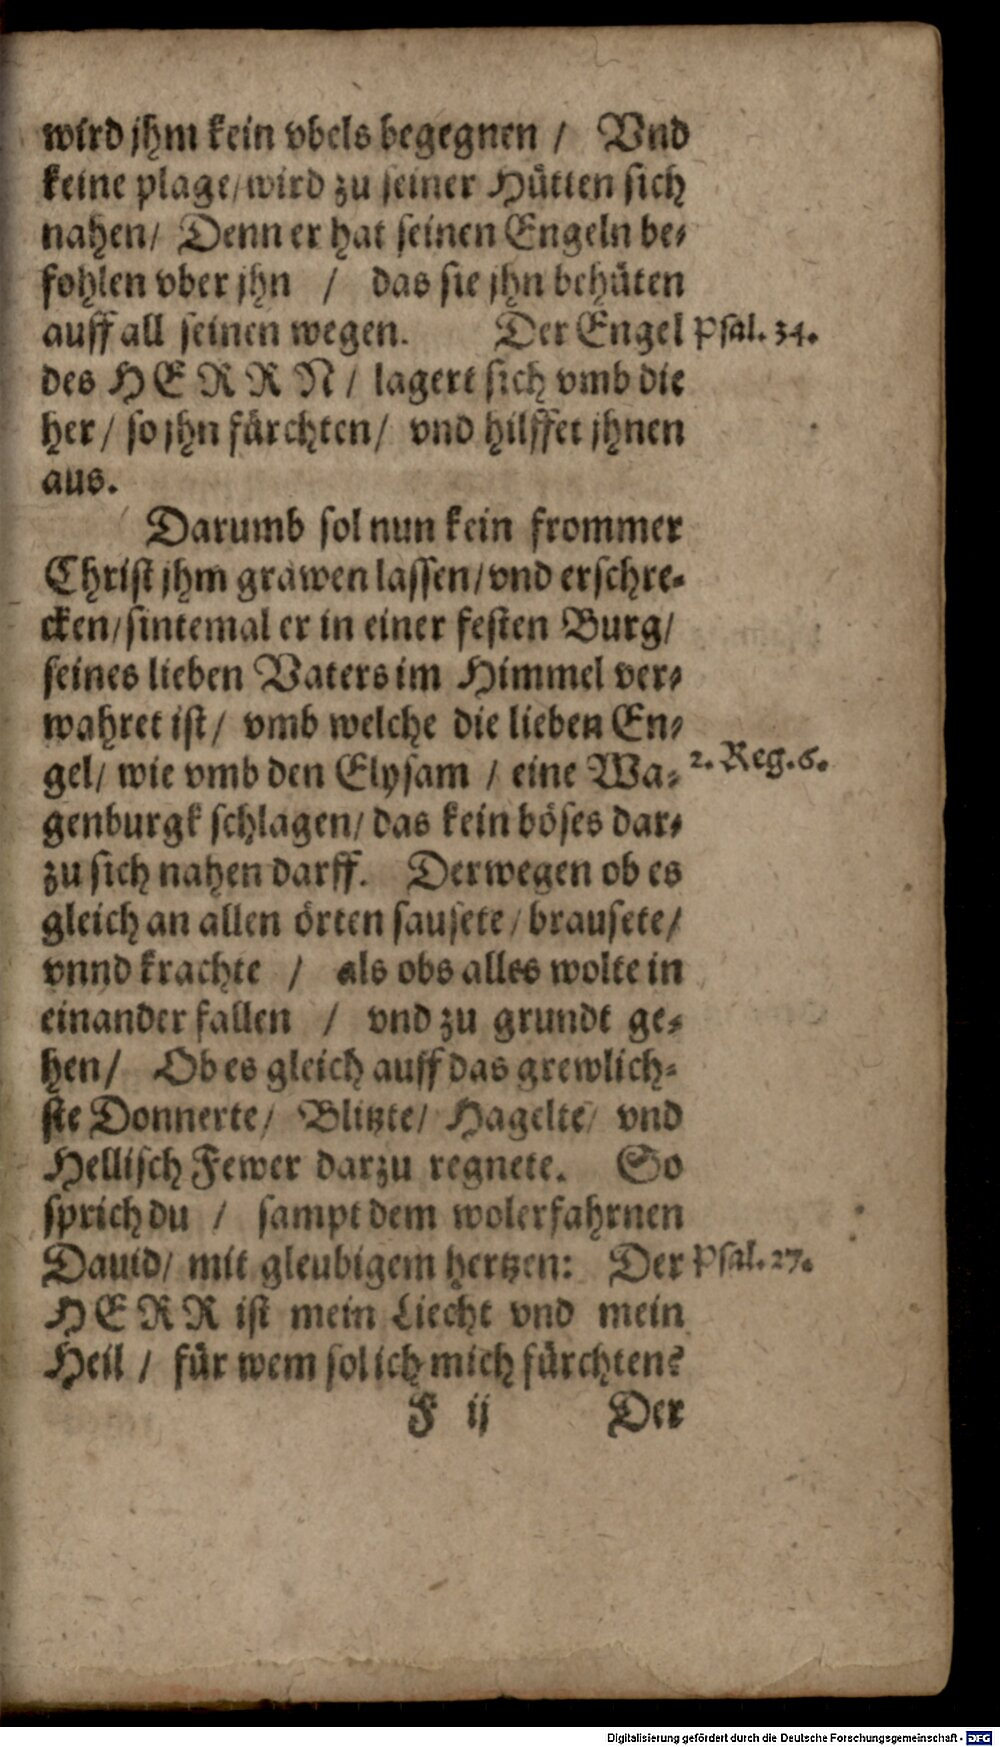 wird jhm kein vbels begegnen / Vnd
keine plage/wird zu seiner Hütten sich
nahen/ Denn er hat seinen Engeln be-
fohlen vber jhn / das sie jhn behüten
auff all seinen wegen. Der Engel Psal. 34.
des HERRN/ lagert sich vmb die
her/ so jhn fürchten/ vnd hilffet jhnen
aus.
Darumb sol nun kein frommer
Christ jhm grawen lassen/vnd erschre-
cken/sintemal er in einer festen Burg/
seines lieben Vaters im Himmel ver-
wahret ist/ vmb welche die lieben En-
gel/ wie vmb den Elysam / eine Wa- 2. Reg. 6.
genburgk schlagen/ das kein böses dar-
zu sich nahen darff. Derwegen ob es
gleich an allen örten sausete/brausete/
vnnd krachte / als obs alles wolte in
einander fallen / vnd zu grundt ge-
hen/ Ob es gleich auff das grewlich-
ste Donnerte/ Blitzte/ Hagelte/ vnd
Hellisch Fewer darzu regnete. So
sprich du / sampt dem wolerfahrnen
Dauid/ mit gleubigem hertzen: Der Psal. 27.
HERR ist mein Liecht vnd mein
Heil / für wem sol ich mich fürchten?
F ij Der
Digitalisierung gefördert durch die Deutsche Forschungsgemeinschaft - DFG